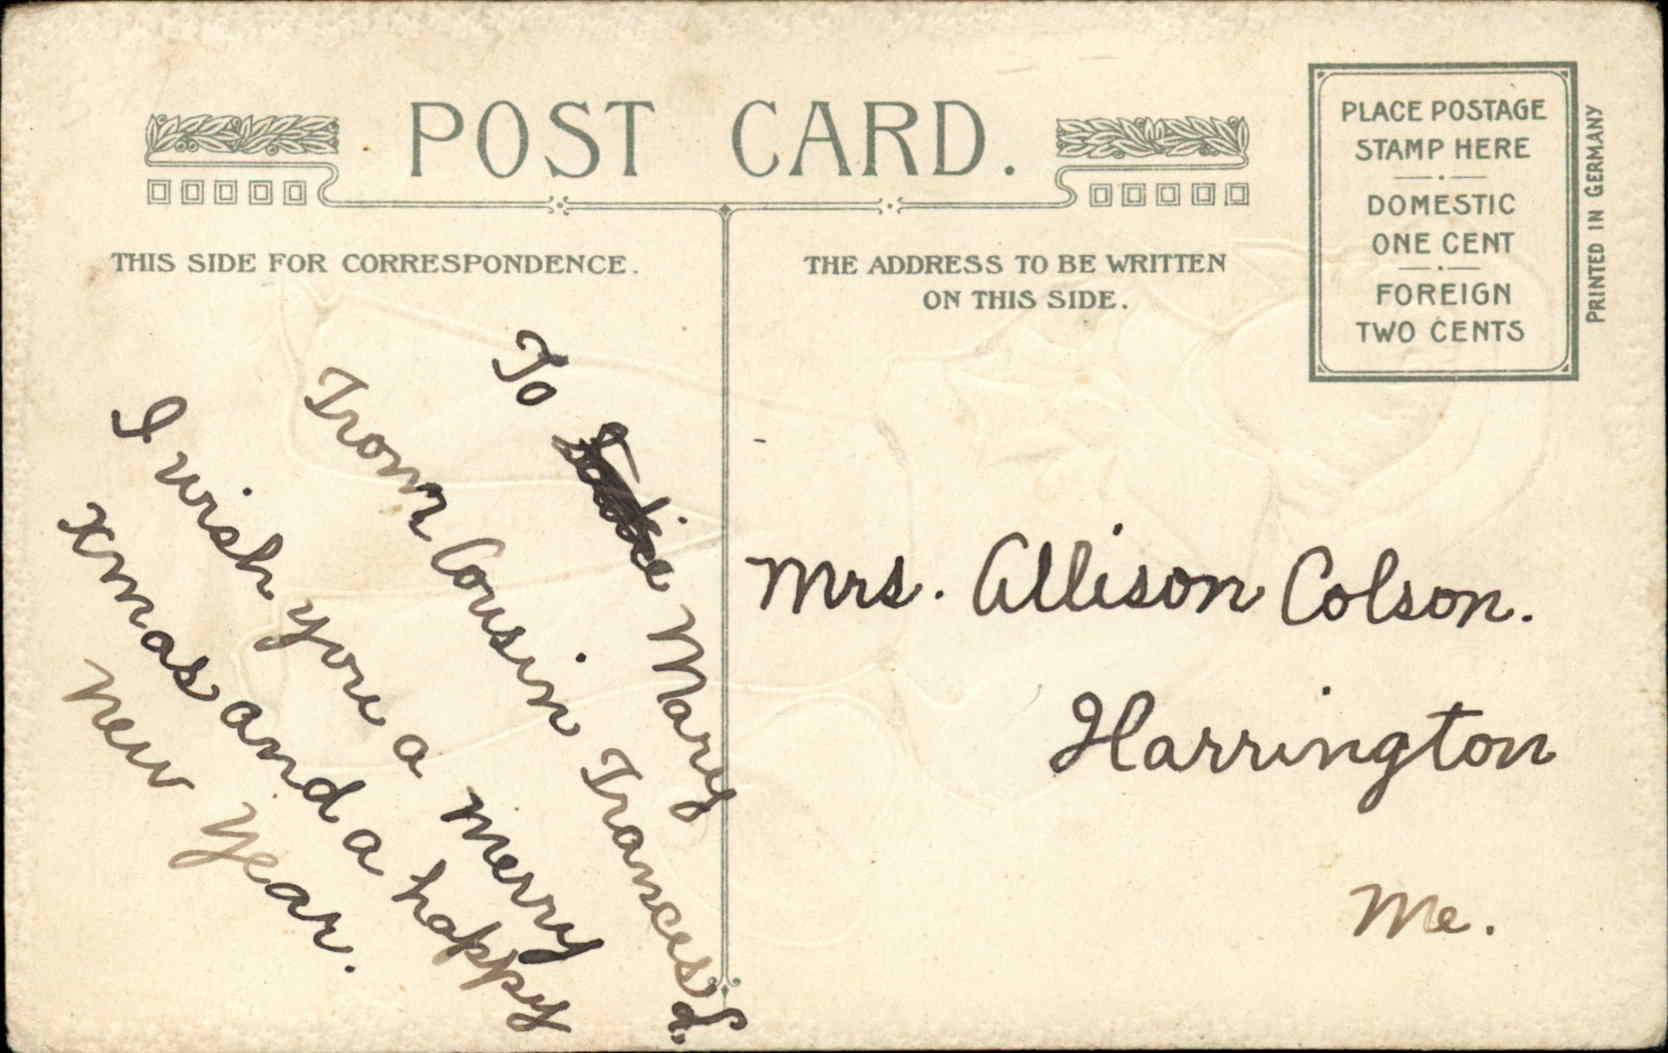 POST CARD.
THIS SIDE FOR CORRESPONDENCE.
THE ADDRESS TO BE WRITTEN
ON THIS SIDE.
PLACE POSTAGE
STAMP HERE
DOMESTIC
ONE CENT
FOREIGN
TWO CENTS
PRINTED IN GERMANY
To Mary
From Cousin Frances L.
I wish you a merry
xmas and a happy
new year.
Mrs. Allison Colson.
Harrington
Me.